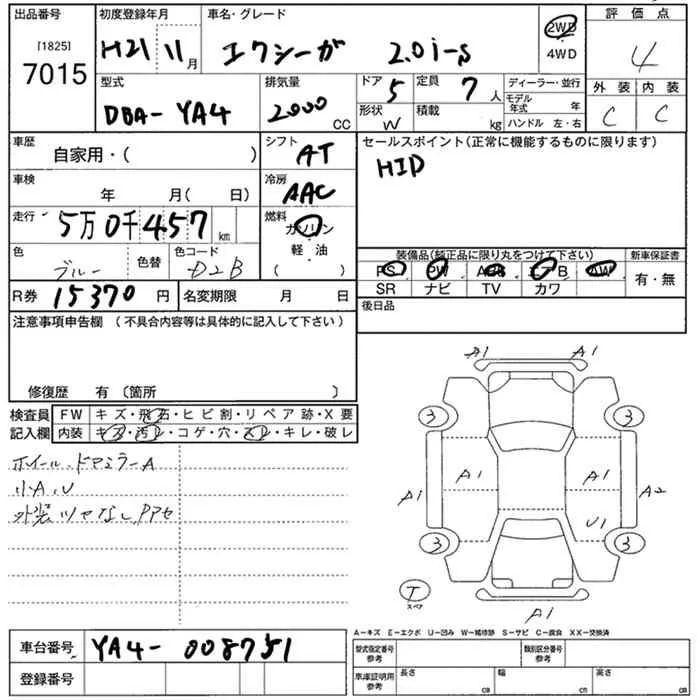 出品番号
[1825]
7015
初度登録年月
H21 11月
車名・グレード
エクシーガ 2.0i-s
2WD
4WD
評価点
4
型式
DBA-YA4
排気量
2000 CC
ドア
5
定員
7人
形状
W
積載
kg
ディーラー・並行
モデル年式 年
ハンドル 左・右
外装 内装
C C
車歴
自家用・( )
シフト
AT
セールスポイント(正常に機能するものに限ります)
HID
車検
年 月( 日)
冷房
AAC
走行
5万0千457km
燃料
ガソリン
軽・油
( )
色
ブルー
色替
色コード
D2B
装備品(純正品に限り丸をつけて下さい)
PS PW エアB AW
SR ナビ TV カワ
新車保証書
有・無
R券 15370円
名変期限 月 日
後日品
注意事項申告欄 (不具合内容等は具体的に記入して下さい)
修復歴 有 〔箇所 〕
検査員記入欄
FW キズ・飛石・ヒビ割・リペア跡・X要
内装 キズ・汚レ・コゲ・穴・スレ・キレ・破レ
ホイール、ドアミラーA
小A、U
外装ツヤなし
A1 A1
3 3
A1 A1 A1 A2
U1
3 3
T
スペア
A1
A-キズ E-エクボ U-凹み W-補修跡 S-サビ C-腐食 XX-交換済
車台番号 YA4-008751
登録番号
型式指定番号
参考
類別区分番号
参考
車庫証明用
参考
長さ cm
幅 cm
高さ cm